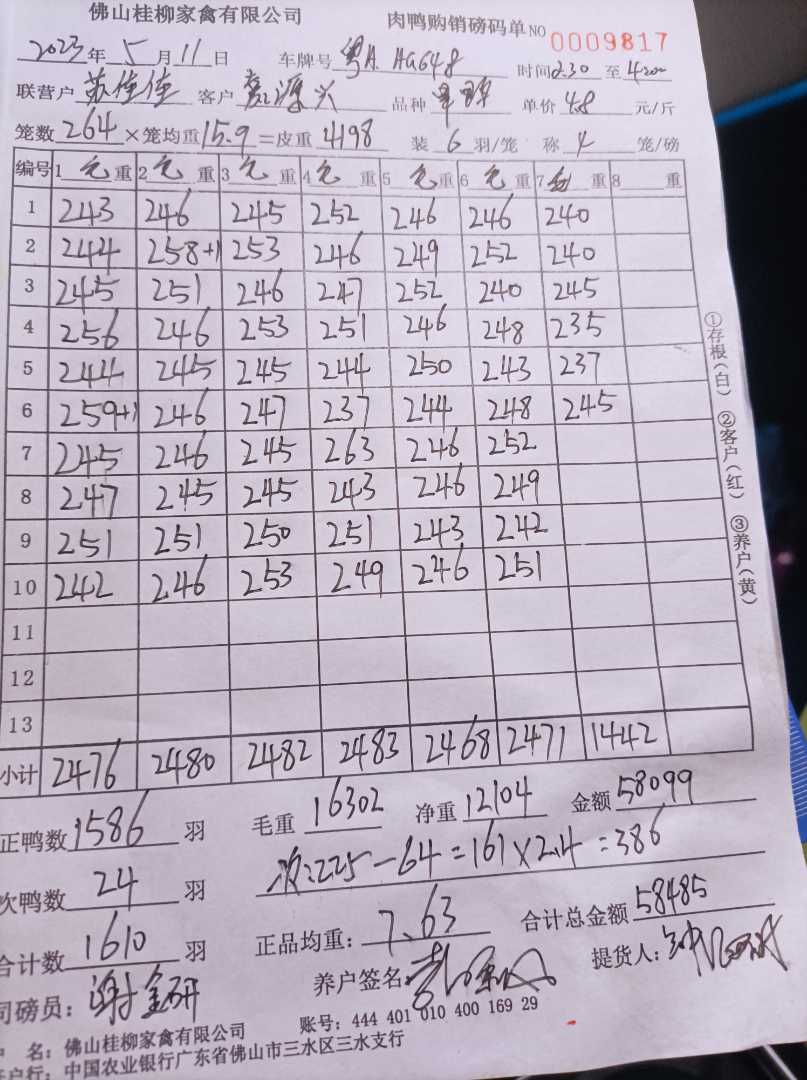 佛山桂柳家禽有限公司 肉鸭购销磅码单 NO 0009817
2023年5月11日 车牌号 粤A HG648 时间2.30至4
联营户 苏佳佳 客户 源兴 品种 单价 4.8 元/斤
笼数264×笼均重15.9=皮重4198 装6羽/笼 称4笼/磅
编号 1毛重 2毛重 3毛重 4毛重 5毛重 6毛重 7毛重 8重
1 243 246 245 252 246 246 240
2 244 258+1 253 246 249 252 240
3 245 251 246 247 252 240 245
4 256 246 253 251 246 248 235
5 244 245 245 244 250 243 237
6 259+1 246 247 237 244 248 245
7 245 246 245 263 246 252
8 247 245 245 243 246 249
9 251 251 250 251 243 242
10 242 246 253 249 246 251
11
12
13
小计 2476 2480 2482 2483 2468 2471 1442
①存根(白) ②客户(红) ③养户(黄)
正鸭数1586羽 毛重 16302 净重 12104 金额 58099
次鸭数 24 羽 次:225-64=161×2.4=386
合计数 1610 羽 正品均重: 7.63 合计总金额 58485
司磅员: 谢金研 养户签名 提货人:
户 名: 佛山桂柳家禽有限公司 账号: 444 401 010 400 169 29
开户行: 中国农业银行广东省佛山市三水区三水支行